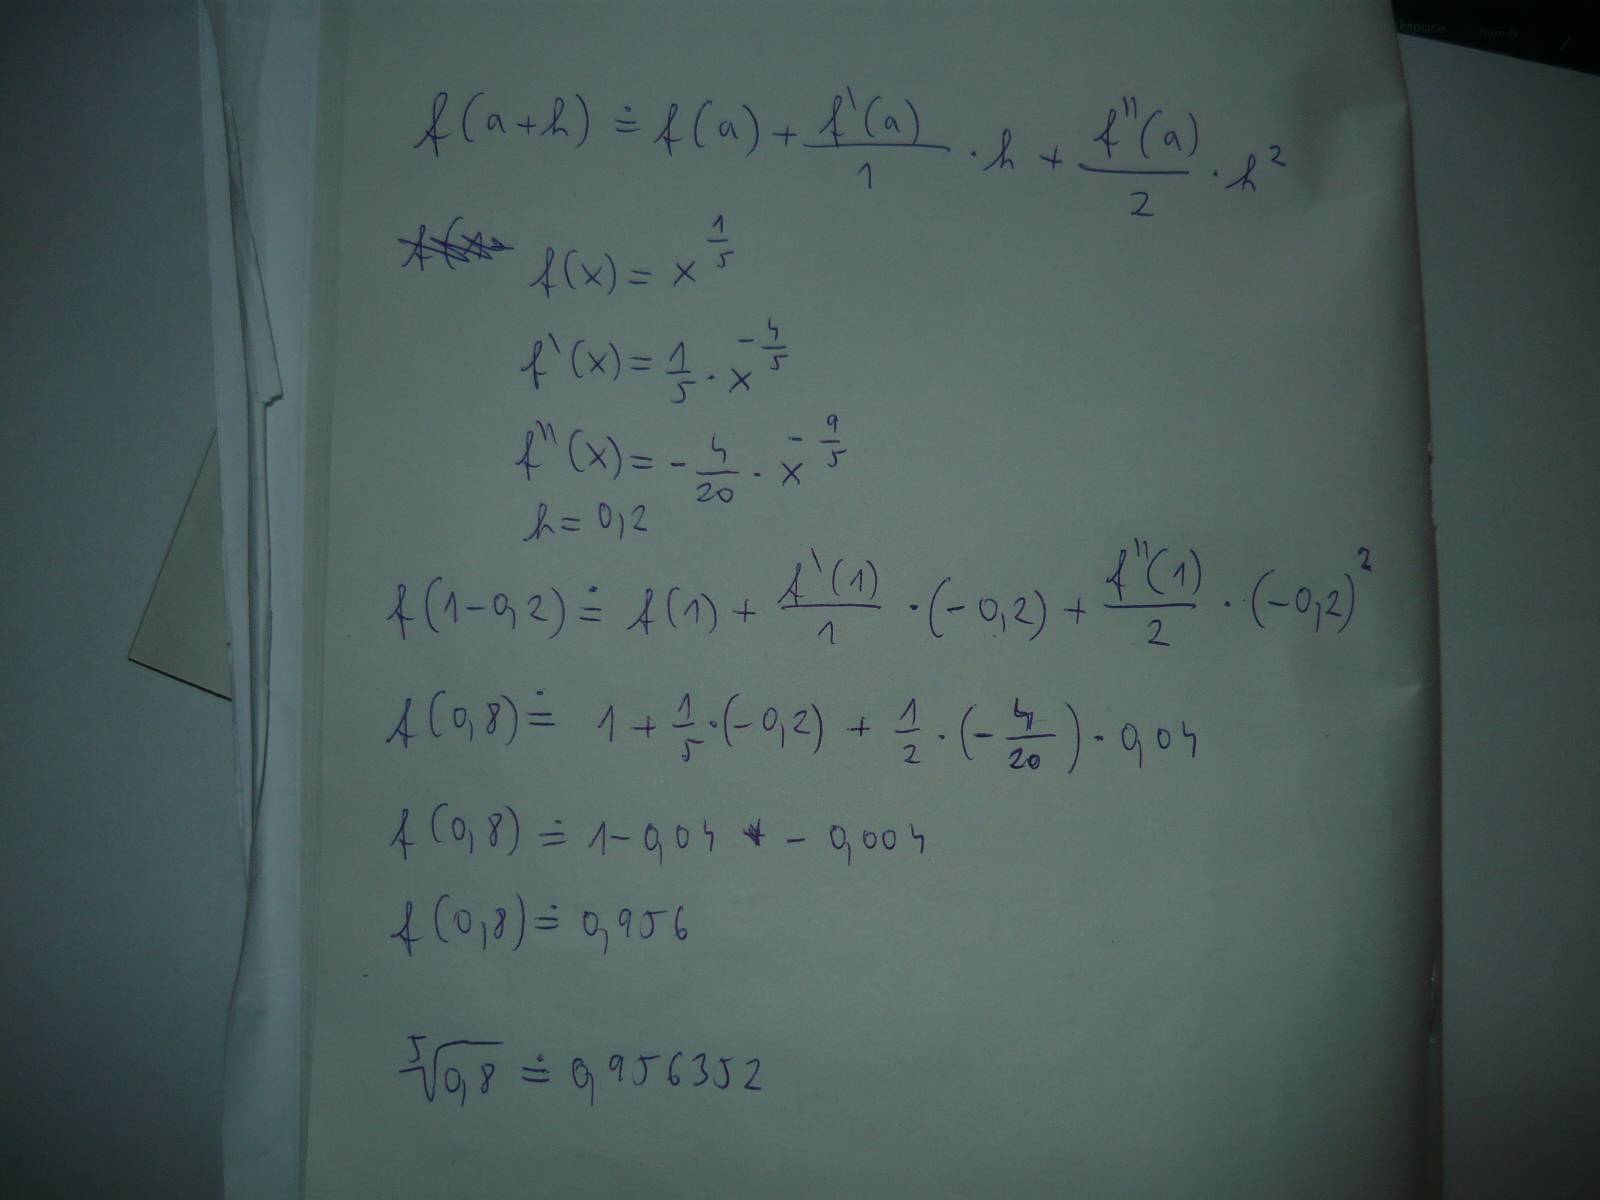 f(a+h) ≐ f(a) + f'(a)/1 · h + f''(a)/2 · h²
f(x) = x^(1/5)
f'(x) = 1/5 · x^(-4/5)
f''(x) = - 4/20 · x^(-9/5)
h = 0,2
f(1-0,2) ≐ f(1) + f'(1)/1 · (-0,2) + f''(1)/2 · (-0,2)²
f(0,8) ≐ 1 + 1/5 · (-0,2) + 1/2 · (- 4/20) · 0,04
f(0,8) ≐ 1 - 0,04 - 0,004
f(0,8) ≐ 0,956
⁵√0,8 ≐ 0,956352